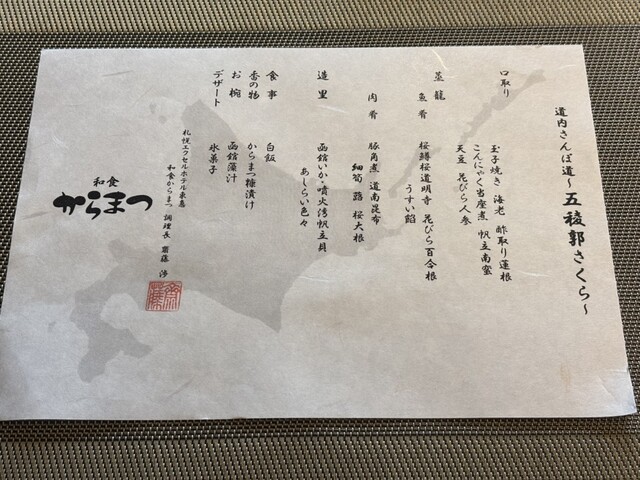 道内さんぽ道～五稜郭さくら～
口取り
玉子焼き 海老 酢取り蓮根
こんにゃく当座煮 帆立南蛮
天豆 花びら人参
蒸籠
魚肴
桜鱒桜道明寺 花びら百合根
うすい餡
肉肴
豚角煮 道南昆布
細筍 蕗 桜大根
造里
函館いか・噴火湾帆立貝
あしらい色々
食事 白飯
香の物 からまつ糠漬け
お椀 函館藻汁
デザート 氷菓子
札幌エクセルホテル東急
和食からまつ 調理長 齋藤 渉
和食
からまつ